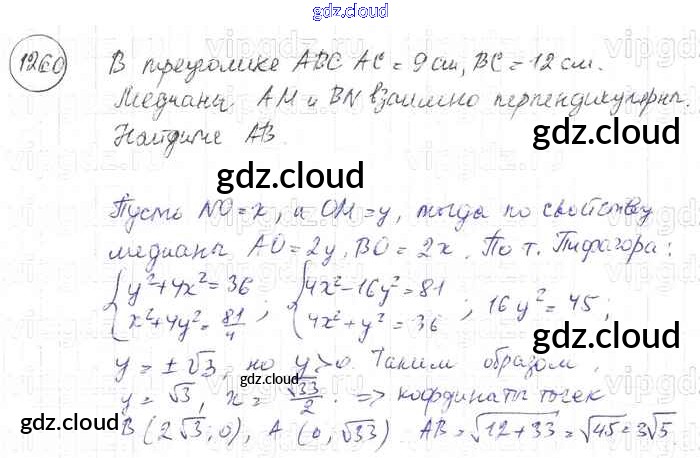 gdz.cloud
1260 В треуголике ABC AC = 9 см, BC = 12 см.
Медианы AM и BN взаимно перпендикулярны.
Найдите AB.
gdz.cloud
gdz.cloud
Пусть NO = x, и OM = y, тогда по свойству
медианы AO = 2y, BO = 2x. По т. Пифагора:
{y²+4x²=36 ; {4x²-16y²=81 ; 16y²=45;
{x²+4y²=81/4 {4x²+y²=36
gdz.cloud
y = ±√3, но y>0. Таким образом,
gdz.cloud
y = √3, x = √33/2. => координаты точек
gdz.cloud
B (2√3; 0), A (0; √33) AB = √12+33 = √45 = 3√5
gdz.cloud